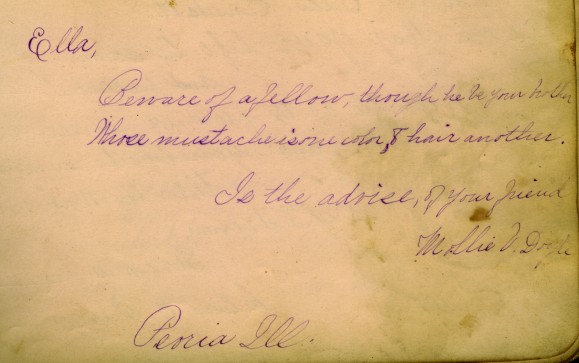 Ella,
Beware of a fellow, though he be your brother
Whose mustache is one color, & hair another.
Is the advise, of your friend
Mollie V. Doyle
Peoria Ill.